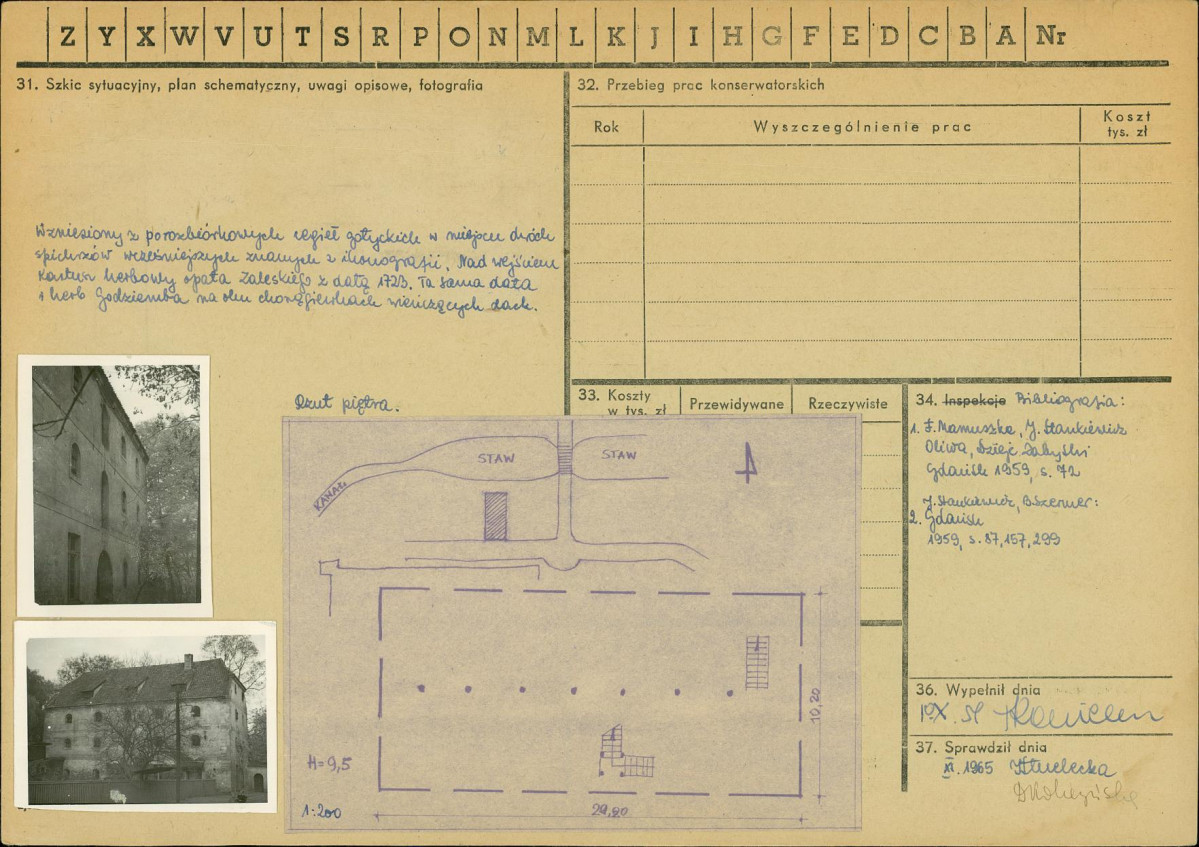 Z Y X W V U T S R P O N M L K J I H G F E D C B A Nr
31. Szkic sytuacyjny, plan schematyczny, uwagi opisowe, fotografia
Wzniesiony z porozbiórkowych cegieł gotyckich w miejscu dwóch
spichrzów wcześniejszych znanych z ikonografii. Nad wejściem
kartusz herbowy opata Zaleskiego z datą 1723. Ta sama data
i herb Godziemba na obu chorągiewkach wieńczących dach.
Rzut piętra.
STAW
STAW
KANAŁ
10,20
H=9,5
1:200
29,20
32. Przebieg prac konserwatorskich
Rok
Wyszczególnienie prac
Koszt
tys. zł
33. Koszty
w tys. zł
Przewidywane
Rzeczywiste
34. Inspekcje Bibliografia:
1. F. Mamuszka, J. Stankiewicz
Oliwa, Dzieje Zabytki
Gdańsk 1959, s. 72
J. Stankiewicz, B. Szermer:
2. Gdańsk
1959, s. 87, 157, 299
36. Wypełnił dnia
37. Sprawdził dnia
XI. 1965